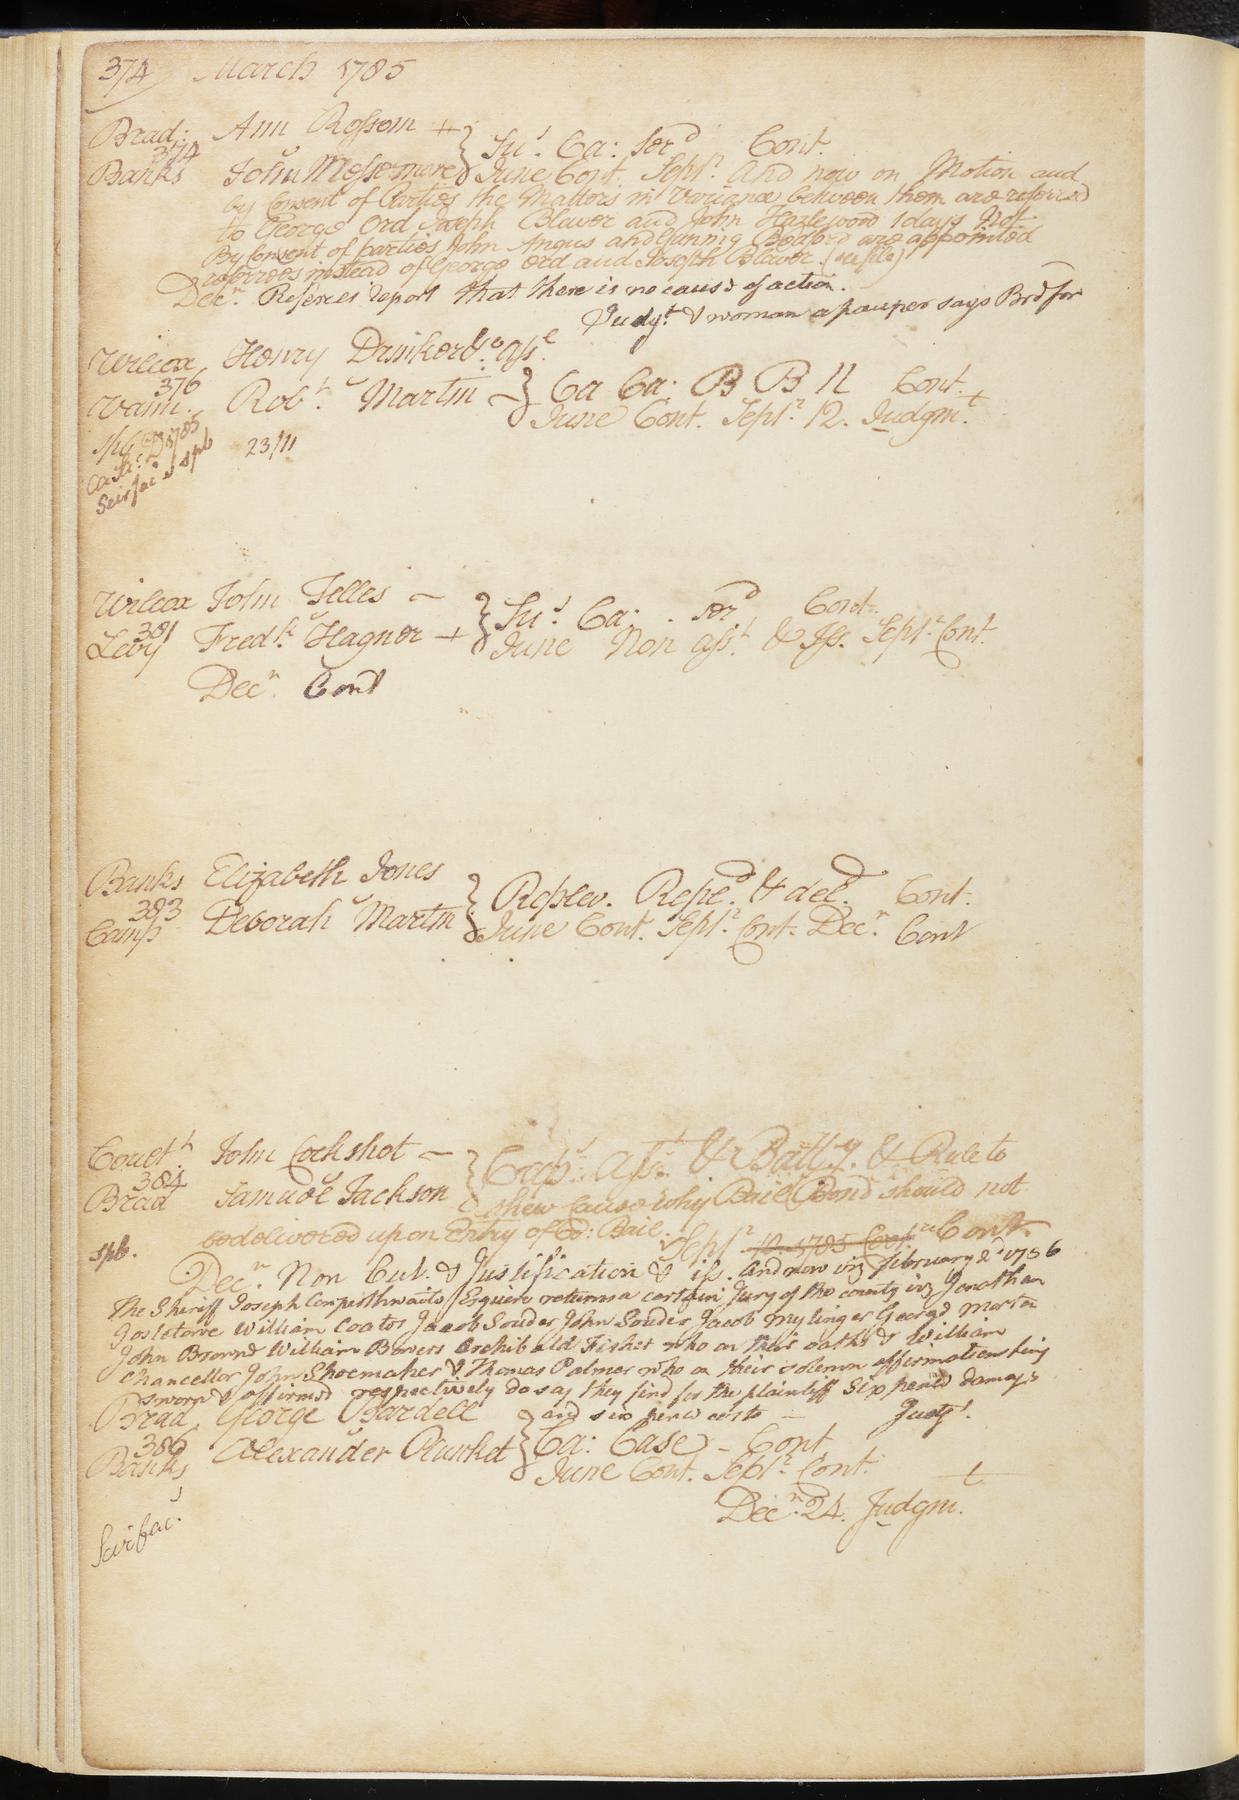 374 March 1785
Brad: Ann Rossom + } Su.s Ca: ser.d Cont.
374
Banks John Messemore June Cont. Sept.r And now on Motion and
by Consent of Parties the Matters in Variance between them are referred
to George Ord Joseph Blewer and John Hazlewood 1 days Not.
By Consent of parties John Angus and Gunnig Bedford are appointed
referees instead of George Ord and Joseph Blewer. (see file)
Dec.r Referees report that there is no cause of action.
Judg.t & woman a pauper says Brd for
Wilcox Henry Drinker &.c Ass.e
376
Vann. Rob.t Martin } Ca Ca: B B 11 Cont.
June Cont. Sept.r 12. Judgm.t
spb 23/11
Sci fac & spb
Wilcox John Felles — } Su.s Ca: ser.d Cont.
381
Levy Fred.k Hagner + June Non ass.t & Iss. Sept.r Cont.
Dec.r Cont
Banks Elizabeth Jones } Replev. Reple.d & del.d Cont.
383
Camp Deborah Martin June Cont. Sept.r Cont. Dec.r Cont
Couct.h John Cockshot — } Cap.s Ass.t & Batt.y & Rule to
384
Brad Samuel Jackson shew Cause why Bail Bond should not
be delivered up on Entry of Co: Bail.
spb. Sept.r 10. 1785 Cont Cont.
Dec.r Non Cul. & Justification & iss. And now viz February 2d 1786
The Sheriff Joseph Cowperthwaite Esquire returns a certain Jury of the county viz Jonathan
Gostelowe William Coates Jacob Souder John Souder Jacob Mylinger George Morton
John Browne William Bowers Archibald Fisher who on their oaths & William
Chancellor John Shoemaker & Thomas Palmer who on their solemn affirmations being
sworn & affirmed respectively do say they find for the plaintiff Six pence damages
and six pence costs — Judg.t
Brad. George Bardell
386
Banks Alexander Plunket } Ca: Case - Cont
June Cont. Sept.r Cont.
Dec.r 24. Judgm.t
Sci fac.s